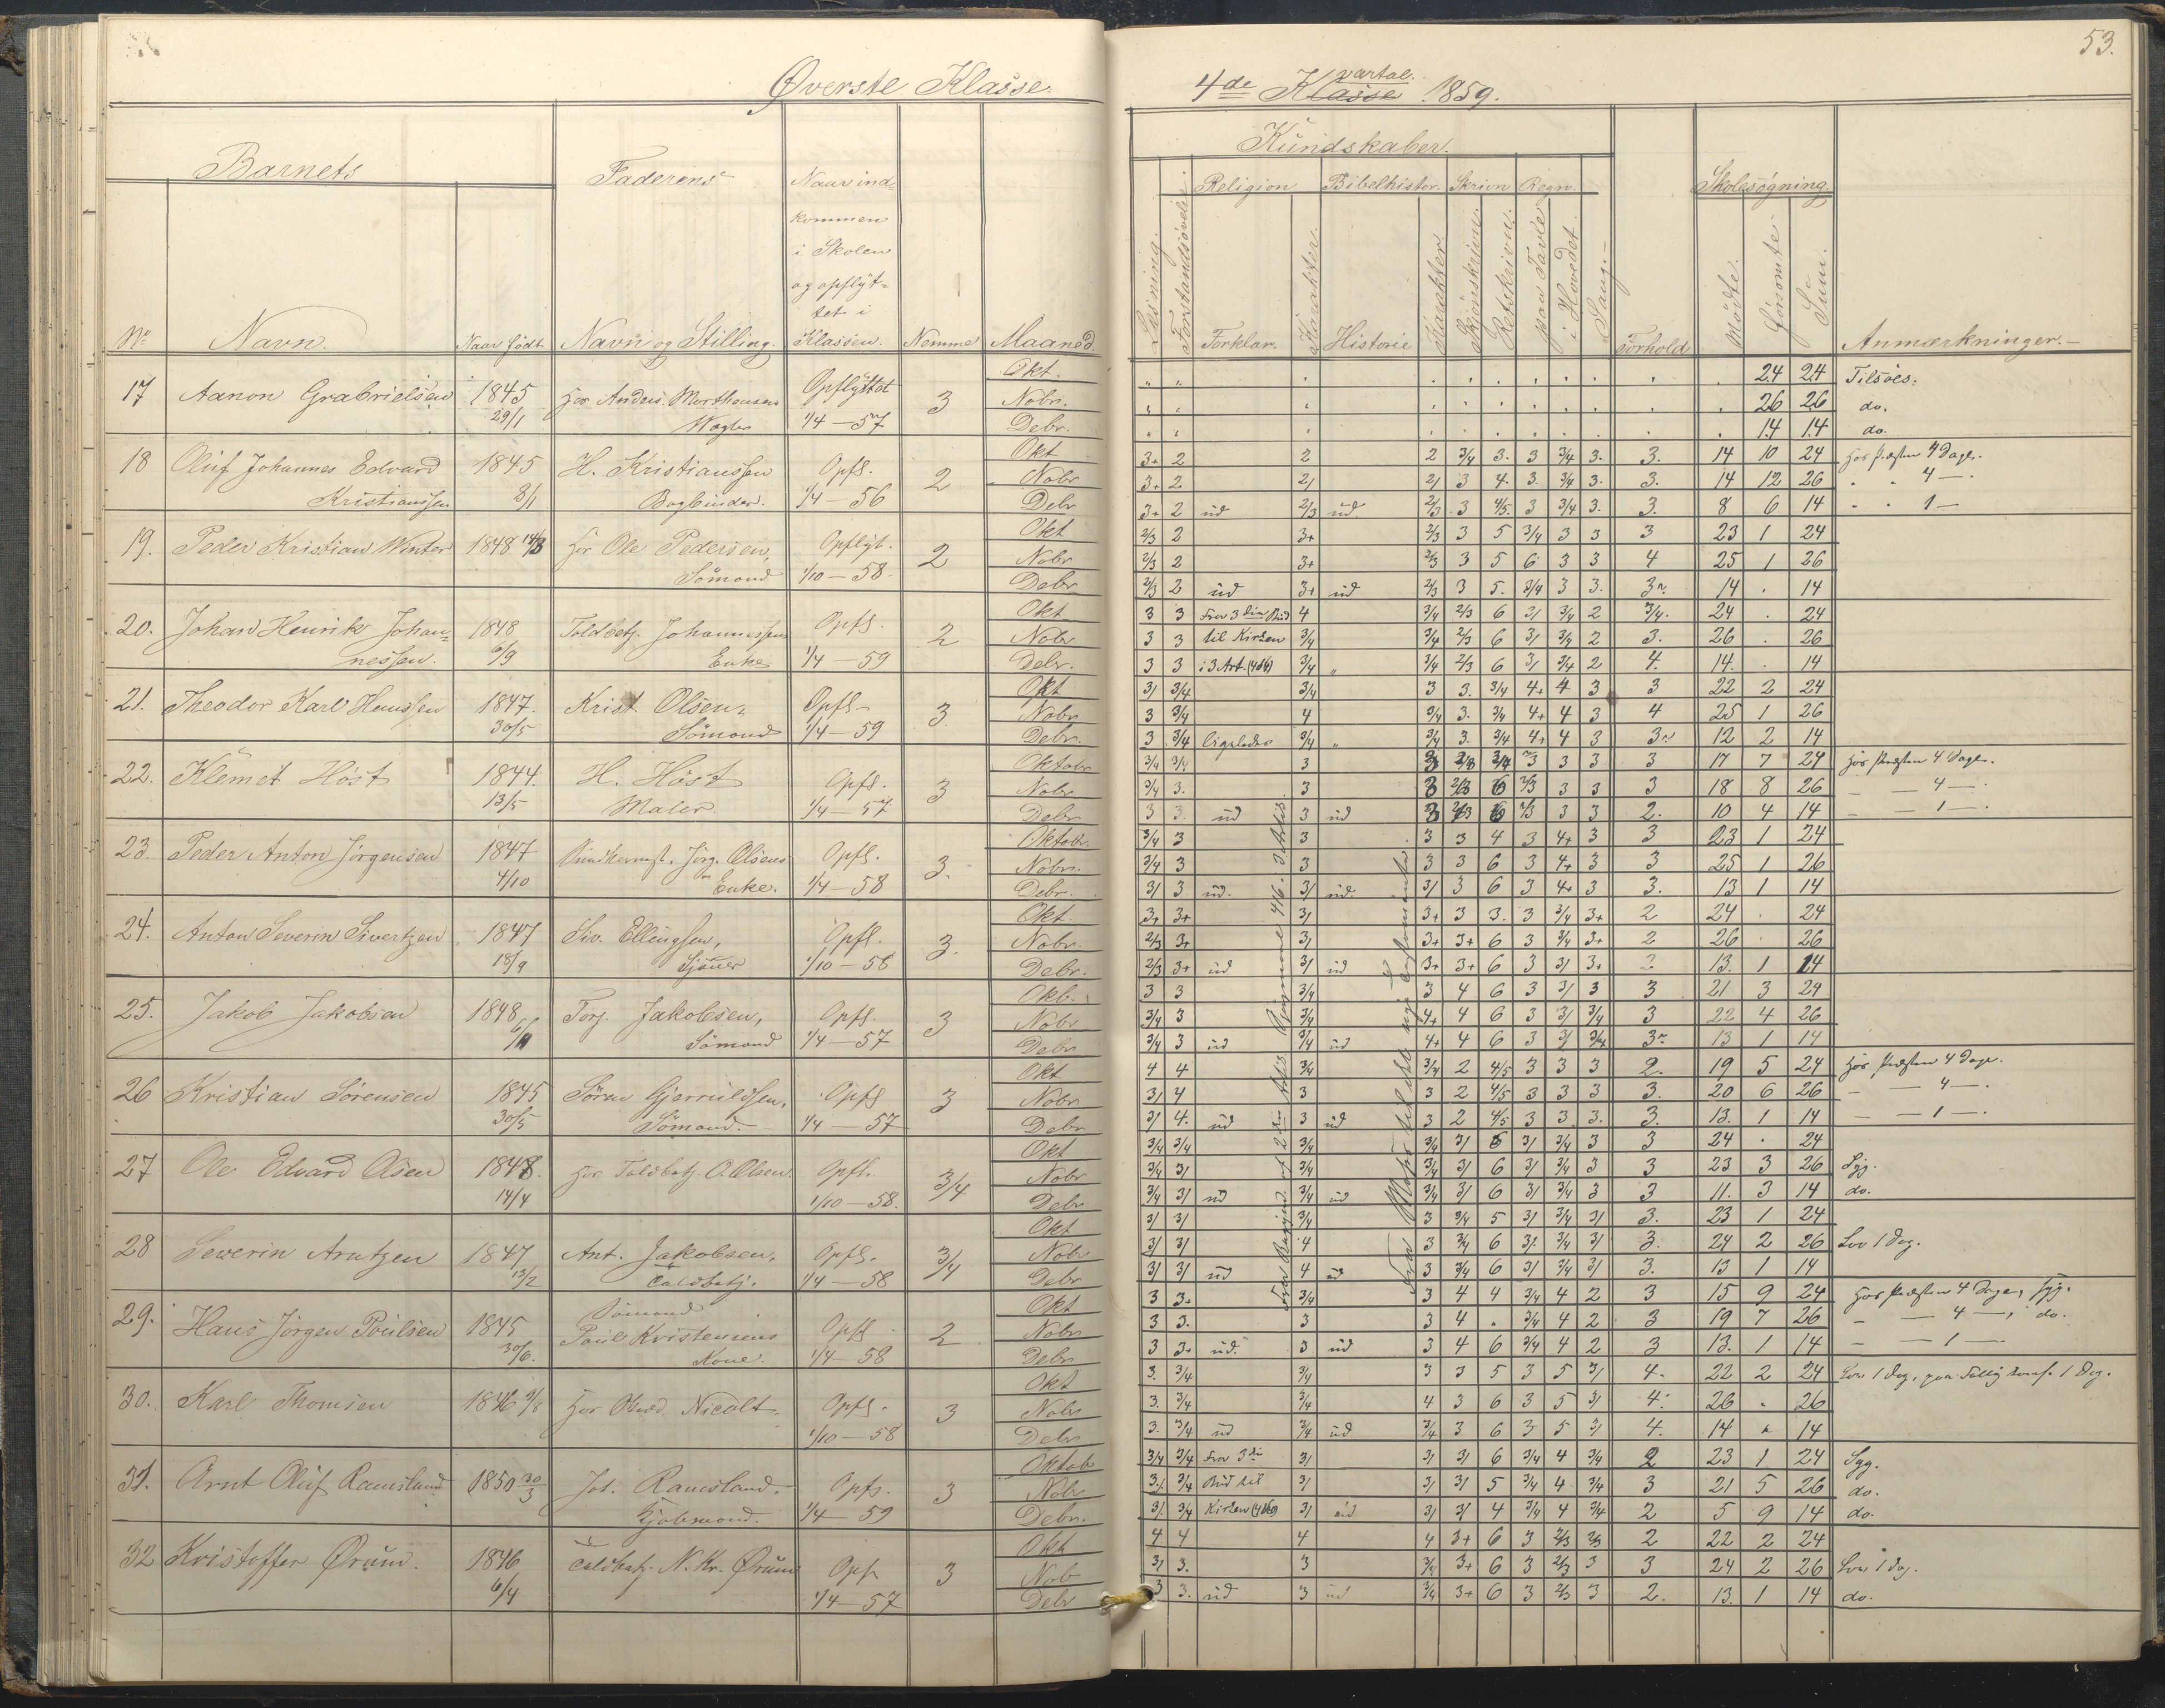 53.
Øverste Klasse.
4de Kvartal. 1859.
Barnets
Faderens
Naar ind=
kommen
i Skolen
og opflyt=
tet i
Klassen.
No
Navn.
Naar født.
Navn og Stilling.
Nemme
Maaned.
Kundskaber.
Læsning.
Forstandsøvelse.
Religion
Forklar.
Karakter.
Bibelhistor.
Historie
Karakter
Skrivn
Skjønskrivn.
Retskrivn.
Regn.
paa Tavle
i Hovedet.
Sang.
Forhold
Skolesøgning.
Mødte.
Forsømte
Sum.
Anmærkninger.
17 Aanon Grabrielsen 1845 29/1 Hos Anders Morthensen Opflyttet 1/4 — 57 3
Okt. 24 24 Tilsøes.
Nobr. 26 26 do.
Debr. 14 14 do.
18 Oluf Johannes Edvard Kristianssen 1845 8/1 H. Kristianssen Bogbinder. Opfl. 1/4 — 56 2
Okt 3+ 2 2 2 3/4 3. 3 3/4 3. 3. 14 10 24 Hos Præsten 4 Dage.
Nobr 3+ 2 2/ 2/ 3 4. 3. 3/4 3. 3. 14 12 26 " " 4 —.
Debr 3+ 2 ud 2/3 ud. 2/3 3 4/5. 3 3/4 3. 3. 8 6 14 " " 1 —
19. Peder Kristian Winter 1848 14/3 Hos Ole Pedersen, Sømand Opflyt. 1/10 — 58. 2
Okt 2/3 2 3+ 2/3 3 5 3/4 3 3 3 23 1 24
Nobr 2/3 2 3+ 2/3 3 5 6 3 3 4 25 1 26
Debr 2/3 2 ud 3+ ud 2/3 3 5. 3/4 3 3. 3 14 . 14
20. Johan Henrik Johan= nessen. 1848 6/9 Toldbetj. Johannessens Enke Opfl. 1/4 — 59 2
Okt 3 3 Fra 3die Bud 4 3/4 2/3 6 3/ 3/4 2 3/4. 24 . 24
Nobr 3 3 til Kirken 3/4 3/4 2/3 6 3/ 3/4 2 3. 26 . 26
Debr. 3 3 i 3 Art. 3/4 " 3/4 2/3 6 3/ 3/4 2 4. 14. . 14
21. Theodor Karl Hanssen 1847. 30/5 Krist. Olsen, Sømand Opfl. 1/4 — 59 3
Okt 3/ 3/4 3/4 3 3. 3/4 4+ 4 3 3 22 2 24
Nobr 3 3/4 4 3/4 3. 3/4 4+ 4 3 4 25 1 26
Debr. 3 3/4 ligeledes 3/4 " 3/4 3. 3/4 4+ 4 3 3 12 2 14
22. Klemet Höst 1844. 13/5 H. Höst Maler. Opfl. 1/4 — 57 3
Oktobr 3/4 3/4 3 3 2/3 3 3 3 17 7 24 Hos Præsten 4 Dage.
Nobr 3/4 3. 3 3 2/3 6 2/3 3 3 3 18 8 26 — — 4 —.
Debr 3 3. ud 3 ud 3 2/3 6 2/3 3 3 2. 10 4 14 — — 1 —.
23. Peder Anton Jörgensen 1847 4/10 Jörg. Olsens Enke. Opfl. 1/4 — 58 3.
Oktobr. 3/4 3 3 3 3 4 3 4+ 3 3 23 1 24
Nobr. 3/4 3 3 3 3 6 3 4+ 3 3 25 1 26
Debr. 3/ 3 ud. 3/ ud. 3/ 3 6 3 4+ 3 3. 13 1 14
24. Anton Severin Sivertzen 1847 18/9 Siv. Ellingsen, Opfl. 1/10 — 58 3.
Okt. 3+ 3+ 3/ 3+ 3 3. 3 3/4 3+ 2 24 . 24
Nobr. 2/3 3+ 3/ 3+ 3+ 6 3 3/4 3+ 2 26 . 26
Debr. 2/3 3+ ud 3/ ud 3+ 3+ 6 3 3/ 3+ 2 13. 1 14
25. Jakob Jakobsen 1848 Torj. Jakobsen, Sømand Opfl. 1/4 — 57 3
Okt. 3 3 3/4 3 4 6 3 3/ 3 3 21 3 24
Nobr 3/4 3 3/4 4+ 4 6 3 3/ 3/4 3 22 4 26
Debr 3/4 3 ud 3/4 ud 4+ 4 6 3 3/ 3/4 3 13 1 14
26 Kristian Sörensen 1845 30/5 Sören Gjerruldsen, Sömand. Opfl 1/4 — 57 3
Okt 4 4 3/4 3/4 2 4/5 3 3 3 2. 19 5 24 Hos Præsten 4 Dage.
Nobr 3/ 4 3 3 2 4/5 3 3 3 3. 20 6 26 — — 4 —.
Debr 3/ 4. ud 3 ud 3 2 4/5 3 3 3. 3. 13. 1 14 — — 1 —.
27 Ole Edvard Olsen 1848. 14/4 Hos Toldbetj. O. Olsen. Opfl. 1/10 — 58. 3/4
Okt 3/4 3/4 3/4 3/4 3/ 6 3/ 3/4 3 3 24 . 24
Nobr 3/4 3/ 3/4 3/4 3/ 6 3/ 3/4 3 3 23 3 26 Syg.
Debr 3/4 3/ ud 3/4 ud 3/4 3/ 6 3/ 3/4 3 3 11. 3 14 do.
28 Severin Arntzen 1847 13/2 Ant. Jakobsen, Toldbetj. Opfl. 1/4 — 58 3/4
Okt 3/ 3/ 3/4 3 3/4 5 3/ 3/4 3/ 3. 23 1 24
Nobr 3/ 3/ 4 3 3/4 6 3/. 3/4 3/ 3. 24 2 26 Lov 1 Dag.
Debr 3/ 3/ ud 4 ud 3 3/4 6 3/ 3/4 3/ 3. 13 1 14
29. Hans Jörgen Poulsen 1845 30/6. Sømand Poul Kristensens Kone. Opfl 1/4 — 58 2
Okt 3 3+ 3/4 3 4 4 3/4 4 2 3 15 9 24 Hos Præsten 4 Dage, Syg.
Nobr 3 3. 3 3 4 . 3/4 4 2 3 19 7 26 — — 4 —, do.
Debr 3 3+ ud. 3 ud 3 4 6 3/4 4 2 3 13. 1 14 — — 1 —
30. Karl Thomsen 1846 9/8 Hos Nicolt. Opfl. 1/10 — 58 3
Okt 3. 3/4 3/4 3 3 5 3 5 3/ 4. 22 2 24 Lov 1 Dag, 1 Dag.
Nobr 3. 3/4 3/4 4 3 6 3 5 3/ 4. 26 . 26
Debr 3. 3/4 ud 3/4 ud 3/4 3 6 3 5 3/ 4. 14 . 14
31. Arnt Oluf Ramsland 1850 30/3 Joh. Ramsland. Opfl. 1/4 — 59 3
Oktob 3/4 3/4 Fra 3die 3/ 3/ 3/ 6 3/4 4 3/4 2 23 1 24 Syg.
Nobr 3/. 3/4 Bud til 3/ 3/ 3/ 5 3/4 4 3/4 3 21 5 26 do.
Debr. 3/. 3/4 Kirken 3/ ud 3/ 3/ 4 3/4 4 3/4 2 5 9 14 do.
32 Kristoffer Ørum. 1846 6/4 Toldbetj. N. Kr. Ørum Opfl 1/4 — 57 3
Okt 4 4 4 4 3+ 6 3 2/3 2/3 2 22 2 24
Nobr 3/ 3. 3 3/4 3+ 6 3 2/3 3 3 24 2 26 Lov 1 Dag.
Debr 3 3. ud 3 ud 3/4 3+ 6 3 2/3 3 2. 13. 1 14 do.